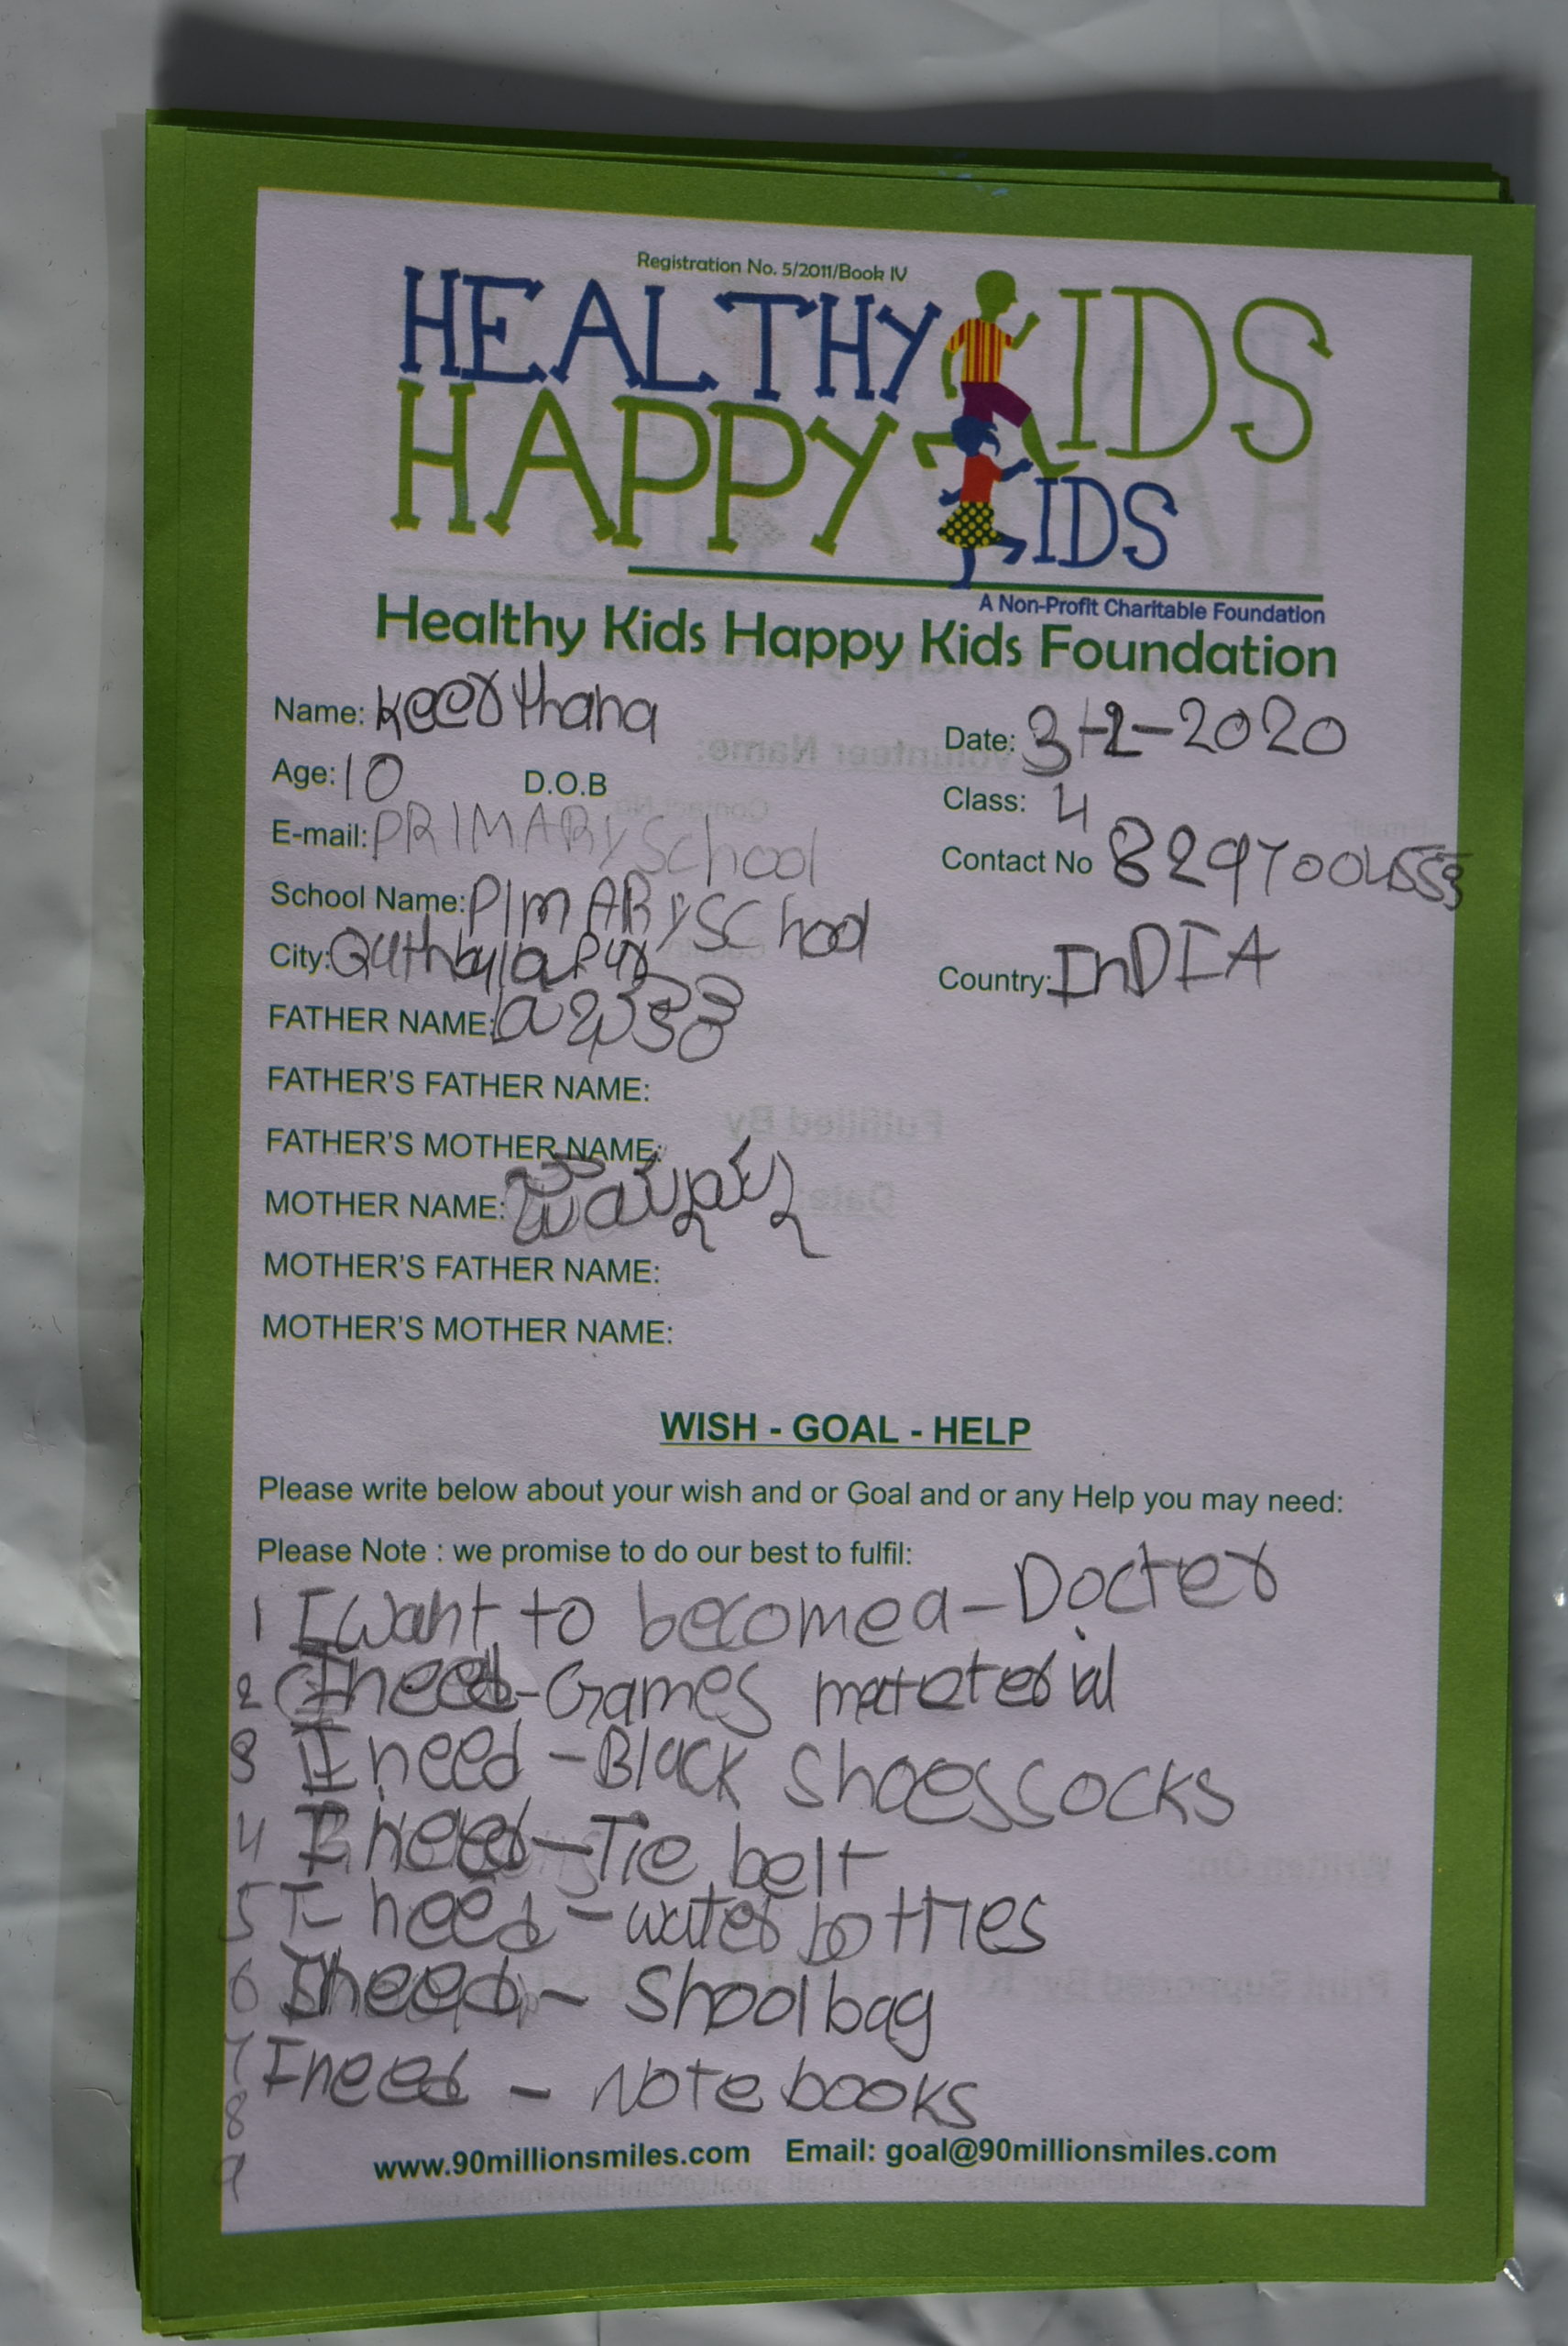 Registration No. 5/2011/Book IV
HEALTHY KIDS
HAPPY KIDS
A Non-Profit Charitable Foundation
Healthy Kids Happy Kids Foundation
Name: Keerthana
Date: 3-2-2020
Age: 10 D.O.B
Class: 4
E-mail: PRIMARY School
Contact No
School Name: PIMARY SChool
City: Quthbylapur
Country: InDIA
FATHER NAME:
FATHER'S FATHER NAME:
FATHER'S MOTHER NAME:
MOTHER NAME:
MOTHER'S FATHER NAME:
MOTHER'S MOTHER NAME:
WISH - GOAL - HELP
Please write below about your wish and or Goal and or any Help you may need:
Please Note : we promise to do our best to fulfil:
1 I want to become a - Docter
2 I need - Games mateterial
3 I need - Black Shoes socks
4 I need - Tie belt
5 I need - water bottles
6 I need - Shool bag
7 I need - Note books
8
9
www.90millionsmiles.com Email: goal@90millionsmiles.com